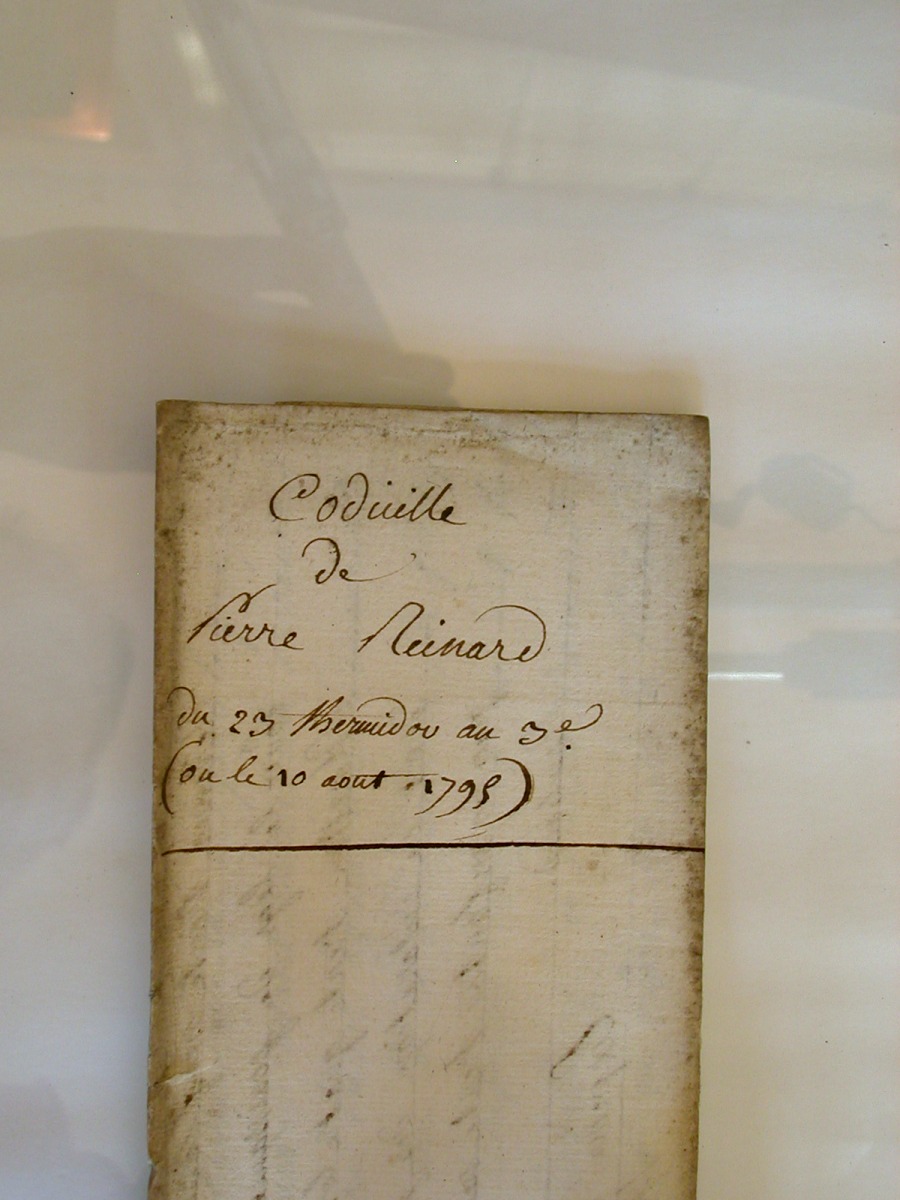 Codicille
de
Pierre Reinard
du 23 thermidor an 3e
(ou le 10 aout 1795)